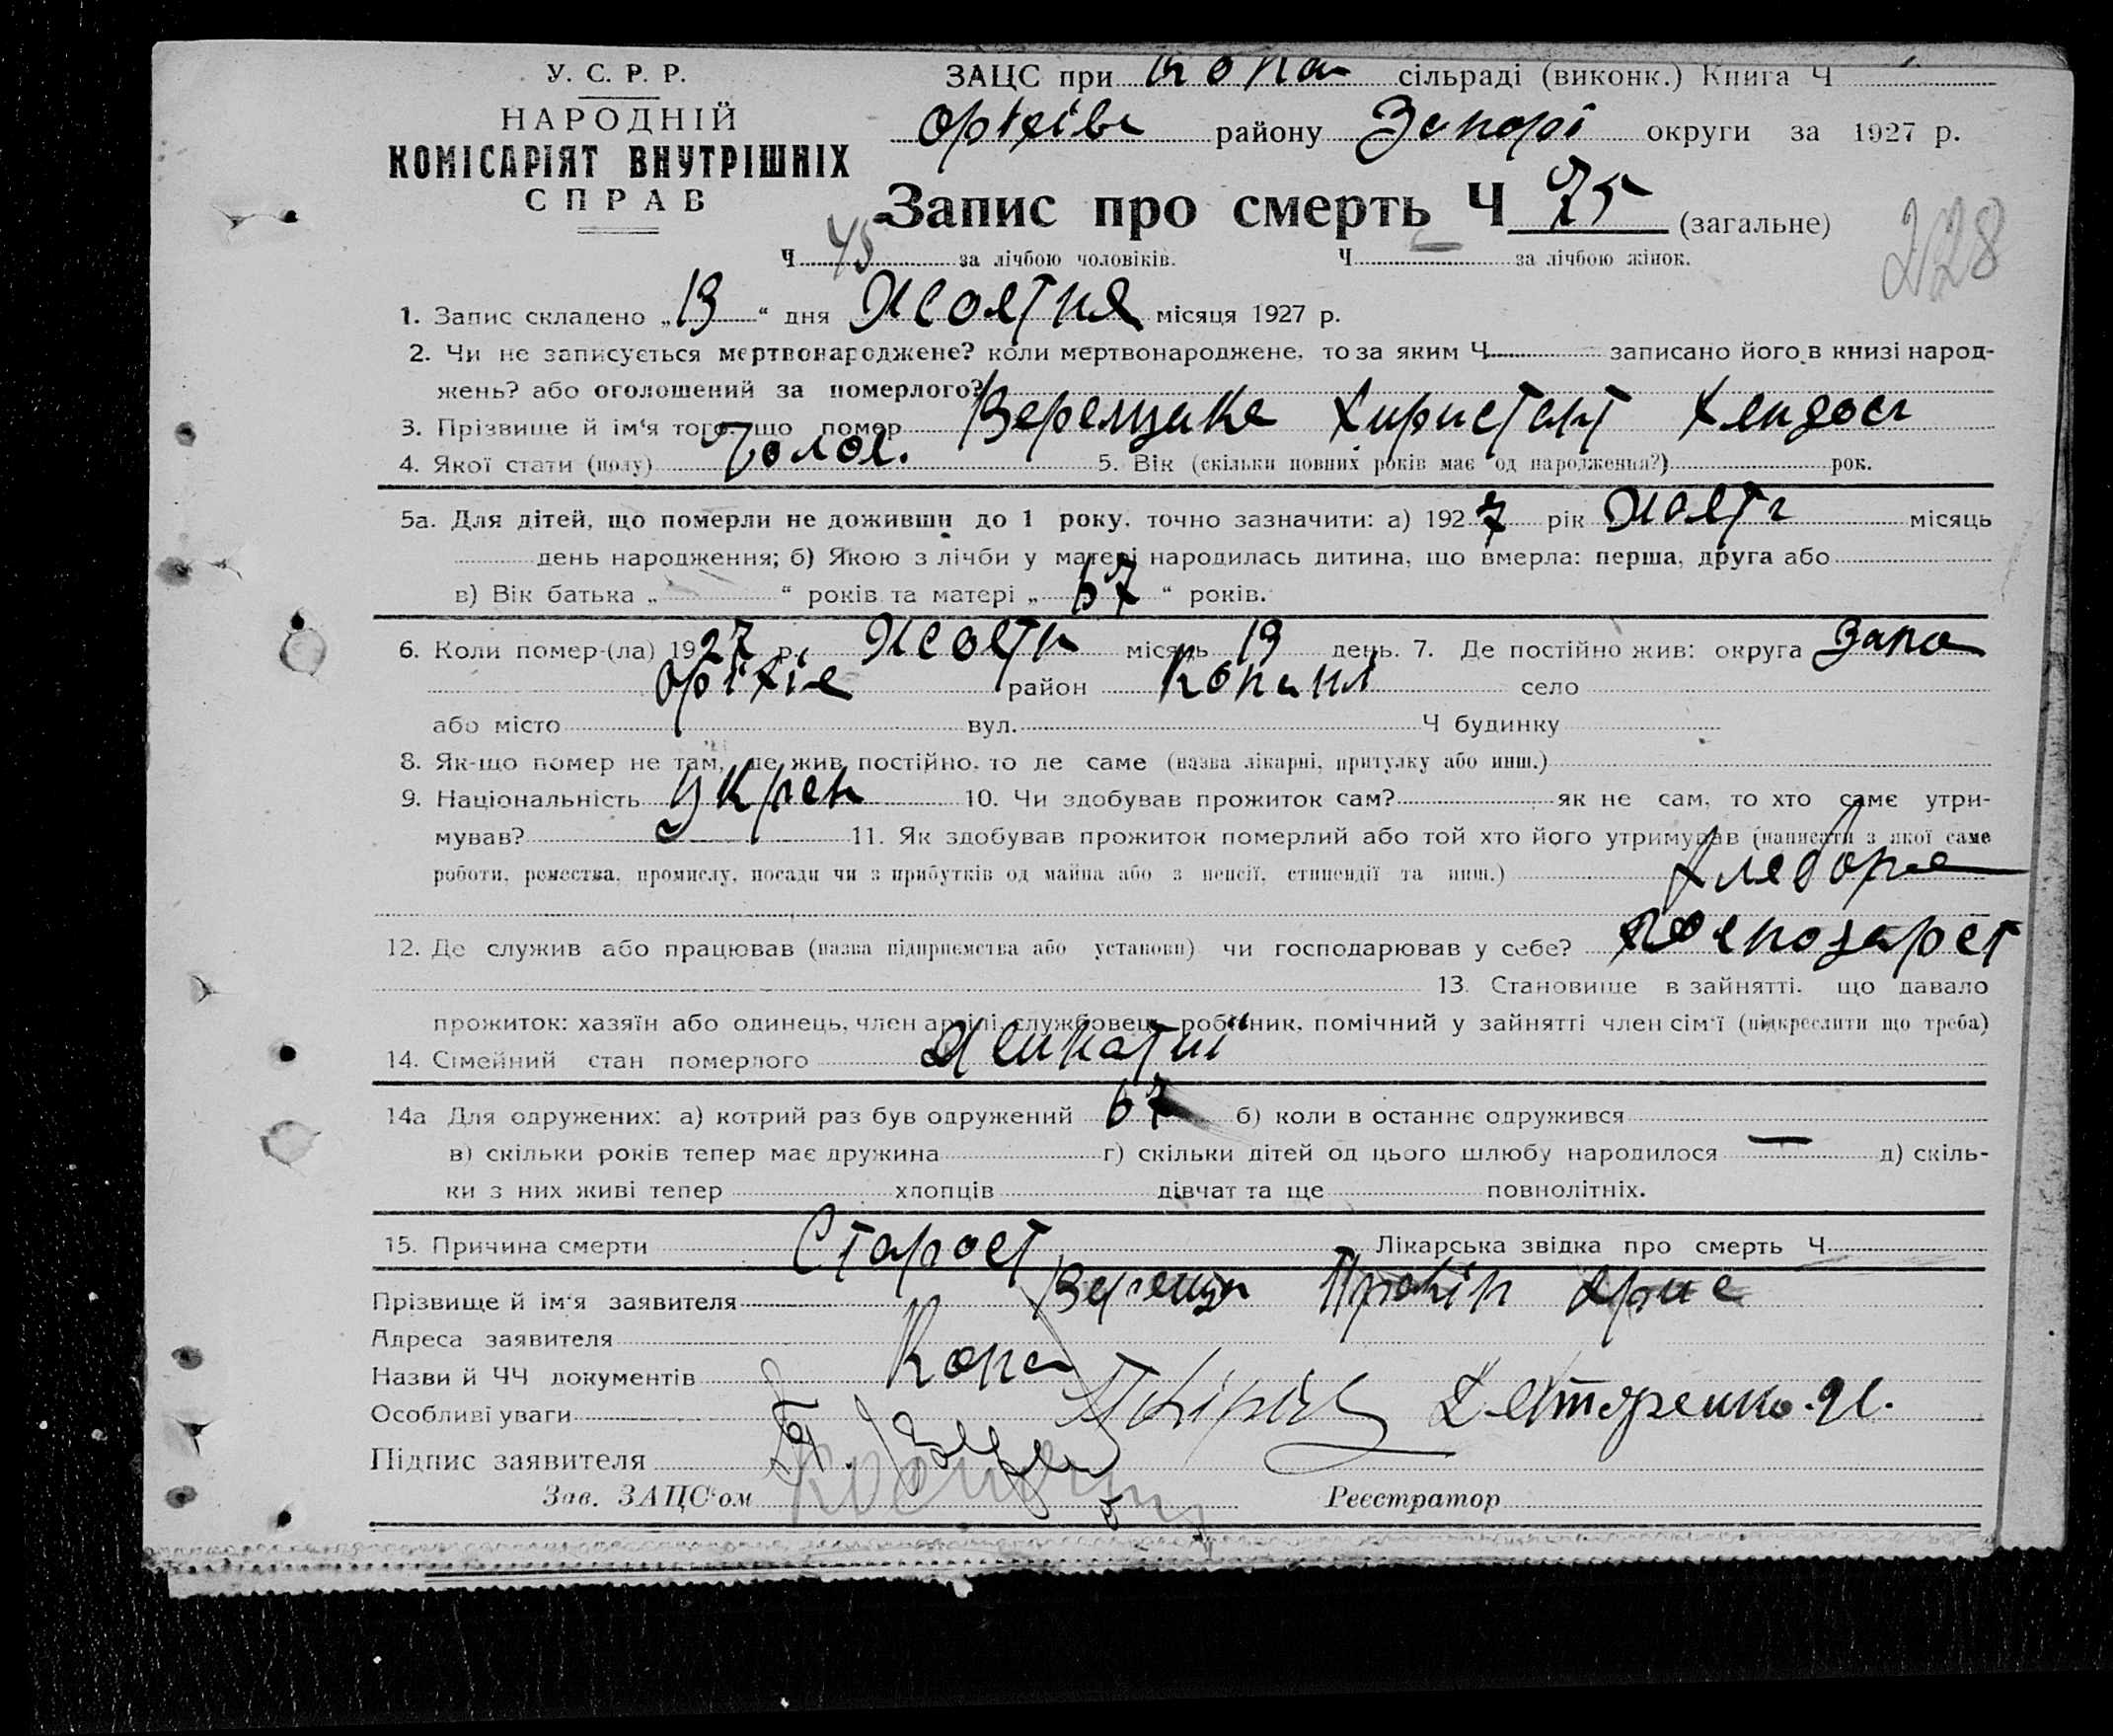 У. С. Р. Р.
НАРОДНІЙ
КОМІСАРІЯТ ВНУТРІШНІХ
СПРАВ
ЗАЦС при Копа сільраді (виконк.) Книга Ч
Оріхівс району Запорі округи за 1927 р.
Запис про смерть Ч 75 (загальне)
228
Ч 45 за лічбою чоловіків. Ч — за лічбою жінок.
1. Запис складено „13“ дня Жолтня місяця 1927 р.
2. Чи не записується мертвонароджене? коли мертвонароджене, то за яким Ч записано його в книзі народ-
жень? або оголошений за померлого?
3. Прізвище й ім'я того, що помер Верещака
4. Якої стати (полу) Чолов. 5. Вік (скільки повних років має од народження?) рок.
5а. Для дітей, що померли не доживши до 1 року, точно зазначити: а) 1927 рік Жолт місяць
день народження; б) Якою з лічби у матері народилась дитина, що вмерла: перша, друга або
в) Вік батька „ “ років та матері „ 67 “ років.
6. Коли помер-(ла) 1927 р. Жолтн місяць 13 день. 7. Де постійно жив: округа Запо
Оріхів район Копані село
або місто вул. Ч будинку
8. Як-що помер не там, де жив постійно, то де саме (назва лікарні, притулку або инш.)
9. Національність Украен 10. Чи здобував прожиток сам? як не сам, то хто саме утри-
мував? 11. Як здобував прожиток померлий або той хто його утримував (написати з якої саме
роботи, ремества, промислу, посади чи з прибутків од майна або з пенсії, стипендії та инш.) Хлебороб
12. Де служив або працював (назва підприємства або установи) чи господарював у себе?
13. Становище в зайнятті, що давало
прожиток: хазяїн або одинець, член артілі, службовець, робітник, помічний у зайнятті член сім'ї (підкреслити що треба)
14. Сімейний стан померлого Женатий
14а Для одружених: а) котрий раз був одружений 67 б) коли в останнє одружився
в) скільки років тепер має дружина г) скільки дітей од цього шлюбу народилося — д) скіль-
ки з них живі тепер хлопців дівчат та ще повнолітніх.
15. Причина смерти Старост Лікарська звідка про смерть Ч
Прізвище й ім'я заявителя Верещ
Адреса заявителя
Назви й ЧЧ документів Копа
Особливі уваги
Підпис заявителя
Зав. ЗАЦС'ом Реєстратор